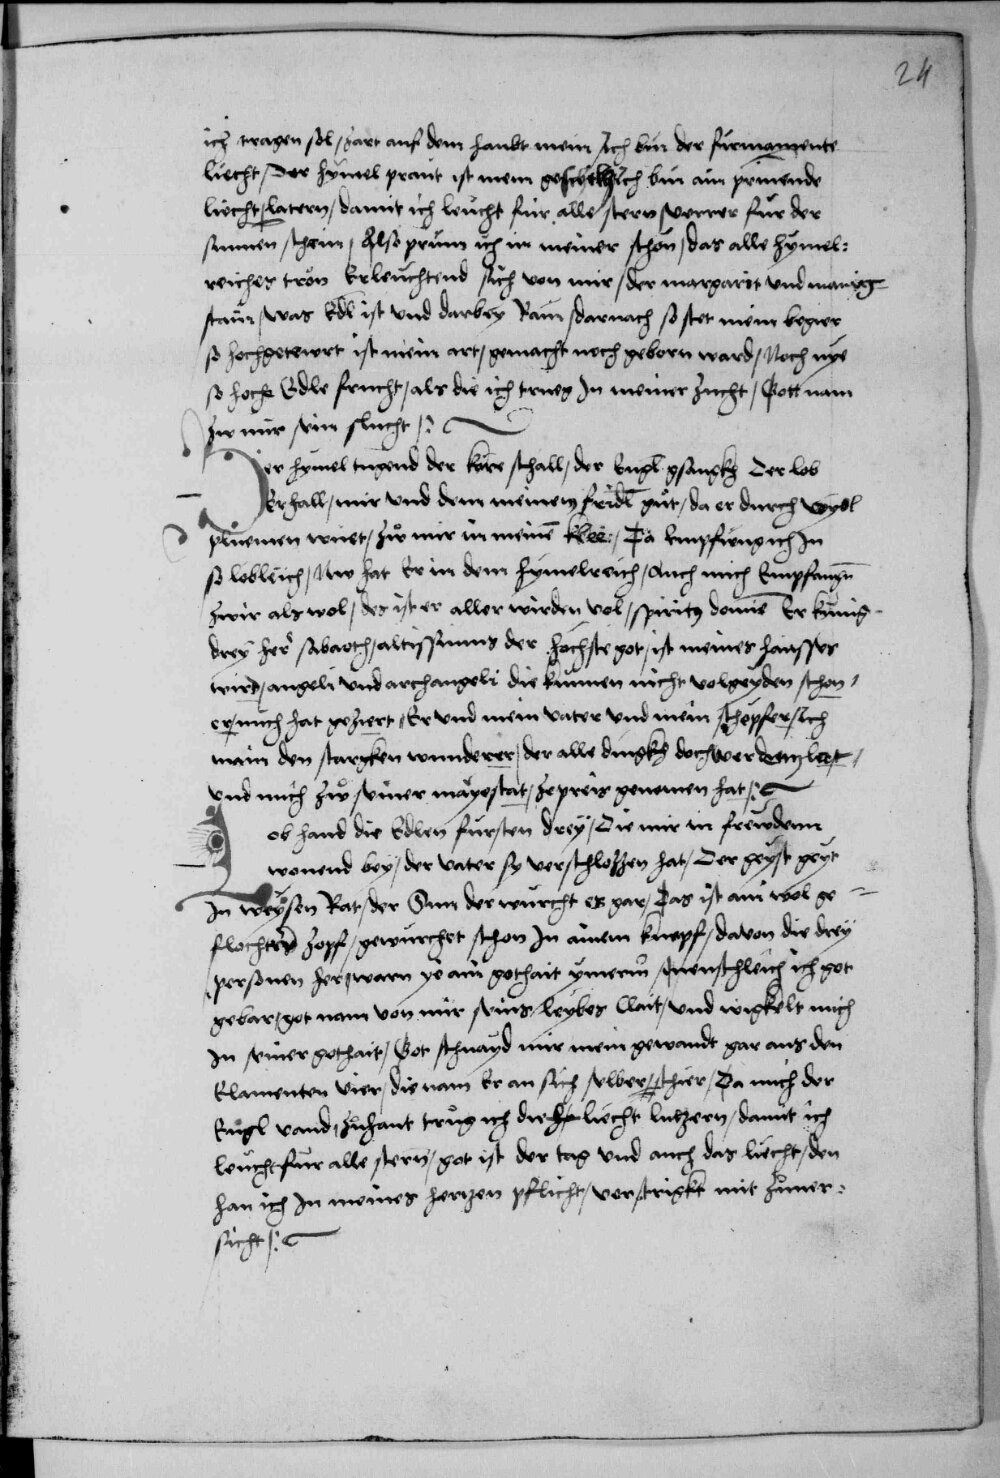 24
ich tragen sol / zart auf dem haubt mein / Ich bin der furmamente
liecht / Der hymel praut ist mein geschicht / Ich bin ain prinende
liecht / latern / damit ich leucht für alle stern verrer für der
sunnen schein / Also prinn ich in meiner schön / das alle hymel=
reiches tron Erleuchtend sich von mir / der margarit und manig
stain / was Edl ist und darbey Rain / darnach so stet mein begier
so hochgetewrt ist mein art / gemacht noch geborn ward / Noch nye
so hoche Edle frucht / als die ich trueg In meiner zucht / Gott nam
zw mir sein flucht /:
Der hymel tugend der köre schall / der Engl gsangkh Der lob
Erhall / mir und dem meinen fridl guet / da er durch veyol
pluemen wuet / zw mir in meinē klee / Da Empfieng ich In
so lobleich / Nw hat Er in dem hymelreich / Auch mich Empfangn̄
zwir als wol / des ist er aller wirden vol / spiritus domine Er kunig
drey herr sabaoth / altissimus der höchste got / ist meines hausses
wird / angeli und archangeli die kunnen nicht volgeyden schon /
er mich hat geziert / Er und mein vater und mein schepfer / Ich
main den starcken wunderer / der alle dingkh doch
und mich zw seiner mayestat / ze preis genomen hat /:
ob hand die Edlen fursten drey / Die mir in frewden
wonend bey / der vater sy verschlossen hat / Der geyst geyt
In weysen Rat / der Sun der wurcht es gar / Das ist ain wol ge=
flochten zopf / gewurchet schon In ainem knopf / davon die drey
personen her / warn ye ain gothait ymermer / menschleich ich got
gebar / got nam von mir seins leybes klait / und wigkelt mich
In seiner gothait / Got schnayd mir mein gewandt gar aus den
Elamenten vier / die nam Er an sich selber schier / Da mich der
Engl vand / zuhant trueg ich die liecht lutzern / damit ich
leucht für alle stern / got ist der tag und auch das liecht / den
han ich In meines hertzen pflicht / verstrigkt mit zuuer=
sicht /: